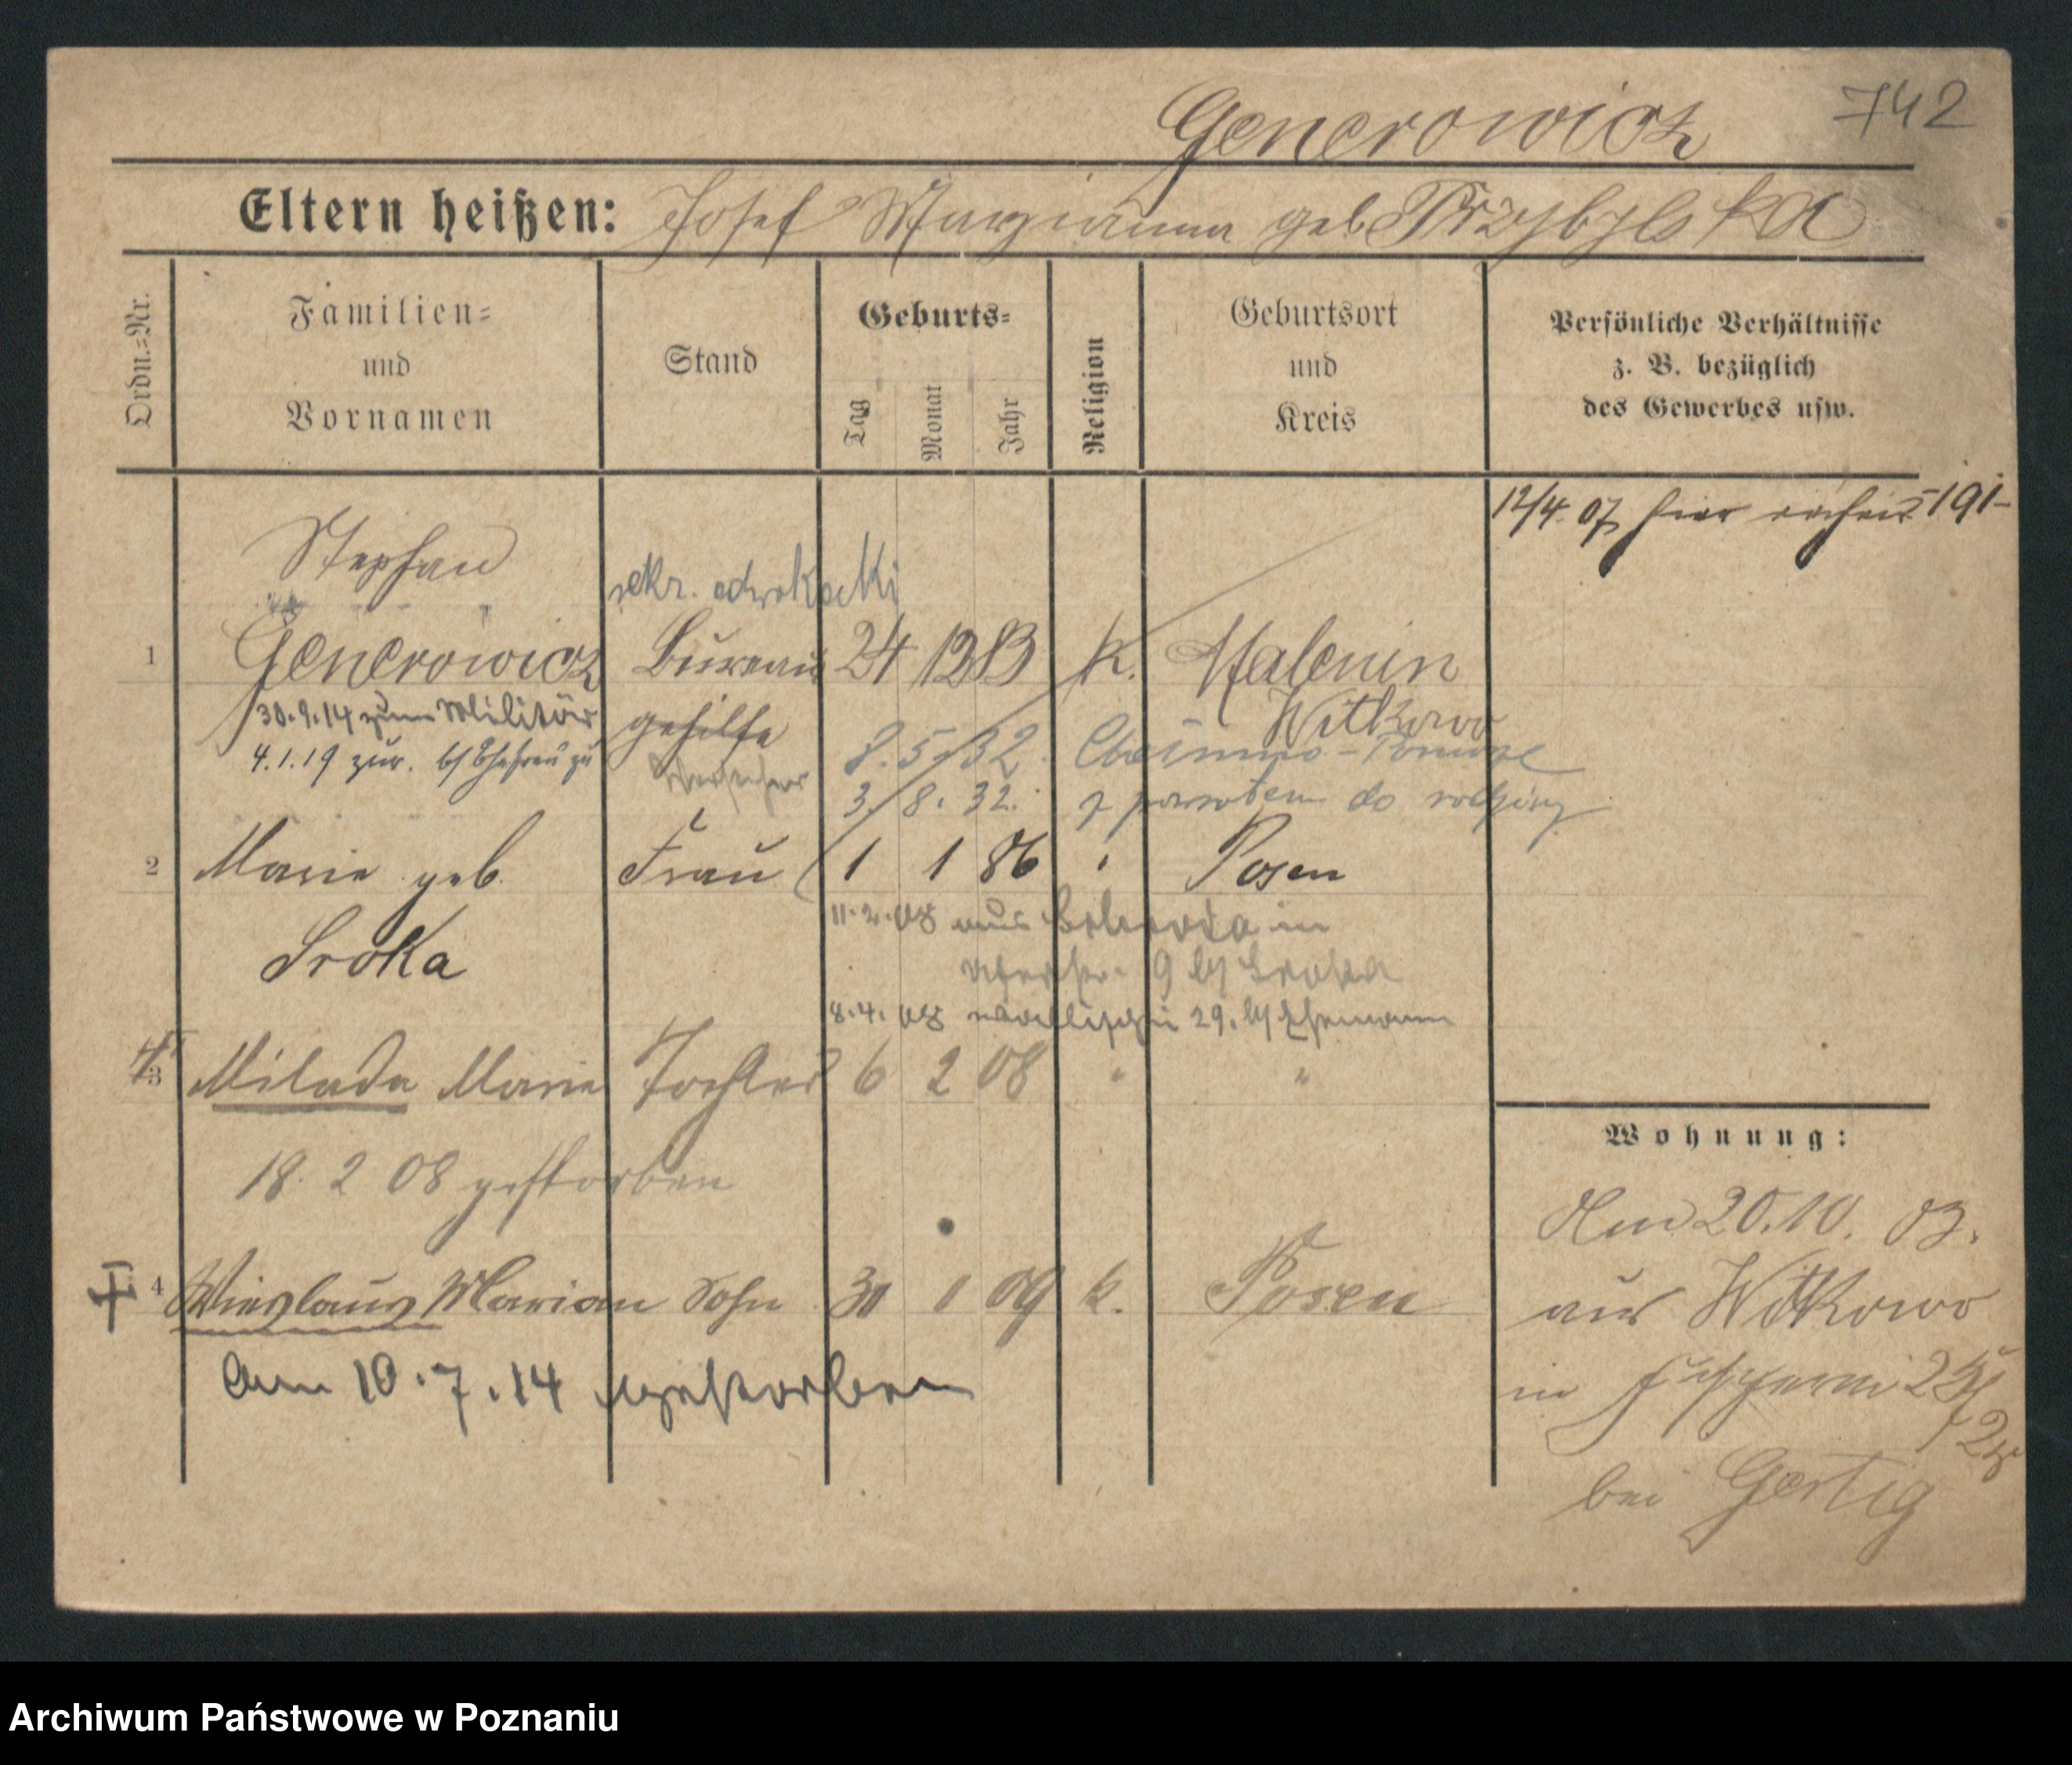 742
Generowicz
Eltern heißen: Josef Maryianna geb Przybylska
Ordn.=Nr.
Familien=
und
Vornamen
Stand
Geburts=
Tag
Monat
Jahr
Religion
Geburtsort
und
Kreis
Persönliche Verhältnisse
z. B. bezüglich
des Gewerbes usw.
12/4 07 hier 191-
Stephan
sekr. adwokacki
1 Generowicz Bureau 24 12 83 k. Malenin
30.9.14 zum Militär gehilfe Witkowo
4.1.19 zur. b/ Ehefrau zu
.5.32. Chełmno - Pomorze
3. 8. 32. z powrotem do rodziny
2 Marie geb. Frau 1 1 86 " Posen
Sroka
11.2.08 aus in
9 b/ Sroka
8.4.08 29. b/ Ehemann
3 Milada Marie Tochter 6 2 08 " "
18. 2 08 gestorben
4 Wieslaus Marian Sohn 30 1 09 k. Posen
Am 10.7.14 gestorben
Wohnung:
Am 20.10. 03.
aus Witkowo
in
bei Gertig
Archiwum Państwowe w Poznaniu